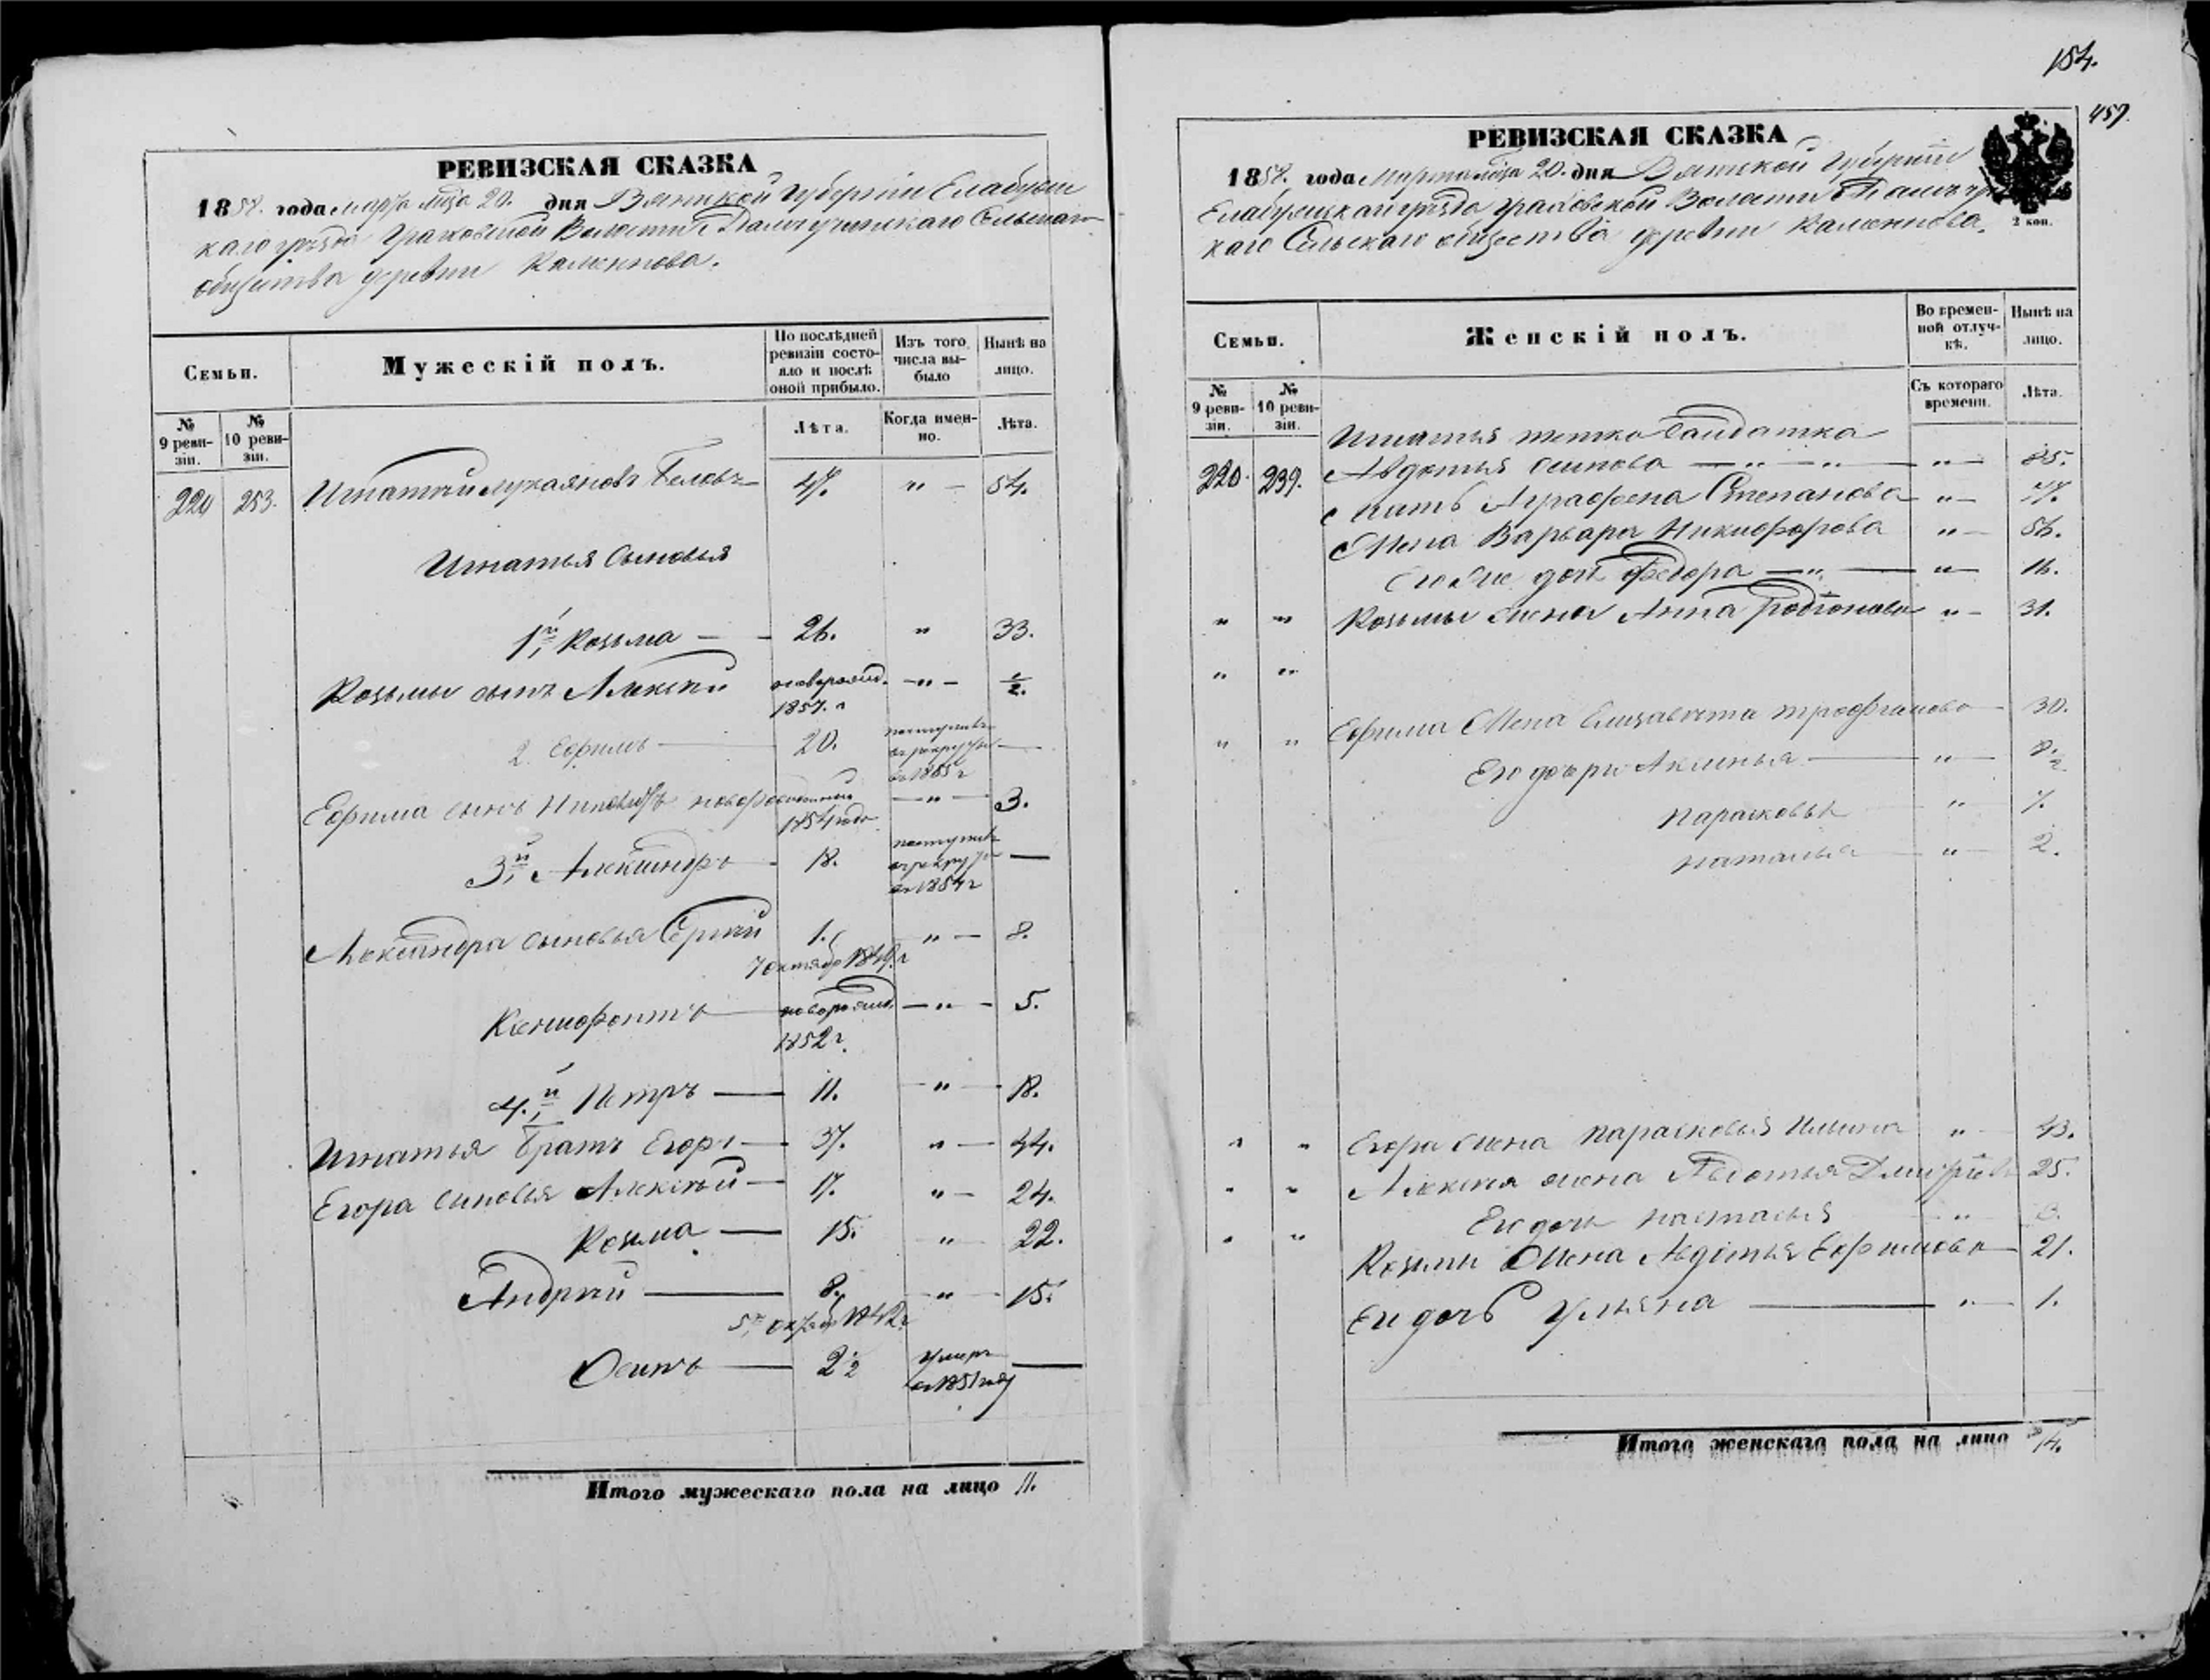 РЕВИЗСКАЯ СКАЗКА
1858. года марта мца 20. дня Вятской Губерніи Елабужс
каго уѣзда Граховской Волости Сельскаго
общества деревни Каменнова.
Семьи.
Мужескій полъ.
По послѣдней ревизіи состояло и послѣ оной прибыло.
Изъ того числа выбыло
Нынѣ на лицо.
№ 9 ревизіи.
№ 10 ревизіи.
Лѣта.
Когда именно.
Лѣта.
220 253. Игнатій Лукаяновъ Бѣловъ 47. " — 54.
Игнатья Сыновья
1й, Козьма — 26. " 33.
Козьмы сынъ Алексѣй новорожд. 1857. г — " — ½.
2 Ефимъ — 20. поступилъ въ рекруты въ 1855 г —
Ефима сынъ новорожденный 1854 года — " — 3.
3й, Александръ — 18. поступилъ въ рекруты въ 1854 г —
Александра сыновья Сергѣй 1. 7 октября 1849. г " — 8.
Ксенофонтъ — новорожд. 1852 г. — " — 5.
4.й, Петръ — 11. — " — 18.
Игнатья братъ Егоръ — 37. " — 44.
Егора сыновья Алексѣй — 17. " — 24.
Козьма — 15. " 22.
Андрей — 8. 5го октября 1842 г — " — 15.
Осипъ — 2½ умеръ въ 1851 году —
Итого мужескаго пола на лицо 11.
154.
459.
РЕВИЗСКАЯ СКАЗКА
1858. года Марта мца 20. дня Вятской Губерніи
Елабужскаго уѣзда Граховской Волости
каго Сельскаго общества деревни Каменнова.
2 коп.
Семьи.
Женскій полъ.
Во временной отлучкѣ.
Нынѣ на лицо.
№ 9 ревизіи.
№ 10 ревизіи.
Съ котораго времени.
Лѣта.
Игнатья тетка Салдатка
220. 239. Авдотья Осипова — " — " — " — 85.
Мать Аграфена Степанова " — 77.
Жена Варвара Никифорова " — 56.
дочь Федора — " — " — 16.
" " Козьмы жена Анна Родіонова " — 31.
" "
" " Ефима Жена Елизавета Трофимова — 30.
Его дочери Акилинья — " — 8½
Парасковья " — 7.
Наталья — " — 2.
" " Егора жена Парасковья Ильина " — 43.
" " Алексѣя жена Авдотья Дмитріева 25.
Его дочь Настасья — " — 3.
" " Козьмы Жена Авдотья Ефимова — 21.
Ея дочь Ульяна — " — 1.
Итого женскаго пола на лицо 14.